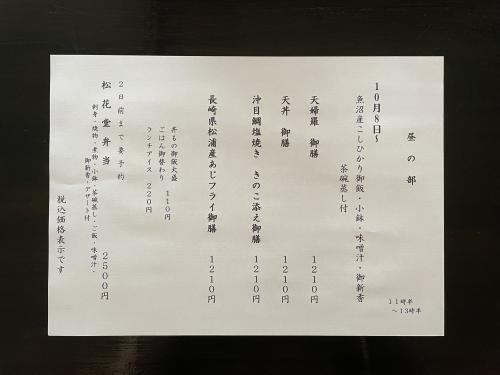 昼の部
１１時半
～１３時半
１０月８日～
魚沼産こしひかり御飯・小鉢・味噌汁・御新香
茶碗蒸し付
天婦羅　御膳　１２１０円
天丼　御膳　１２１０円
沖目鯛塩焼き　きのこ添え御膳　１２１０円
長崎県松浦産あじフライ御膳　１２１０円
丼もの御飯大盛　１１０円
ごはん御替わり
ランチアイス　２２０円
２日前まで要予約
松花堂弁当　２５００円
刺身・焼物・煮物・小鉢・茶碗蒸し・ご飯・味噌汁・
御新香・デザート付
税込価格表示です